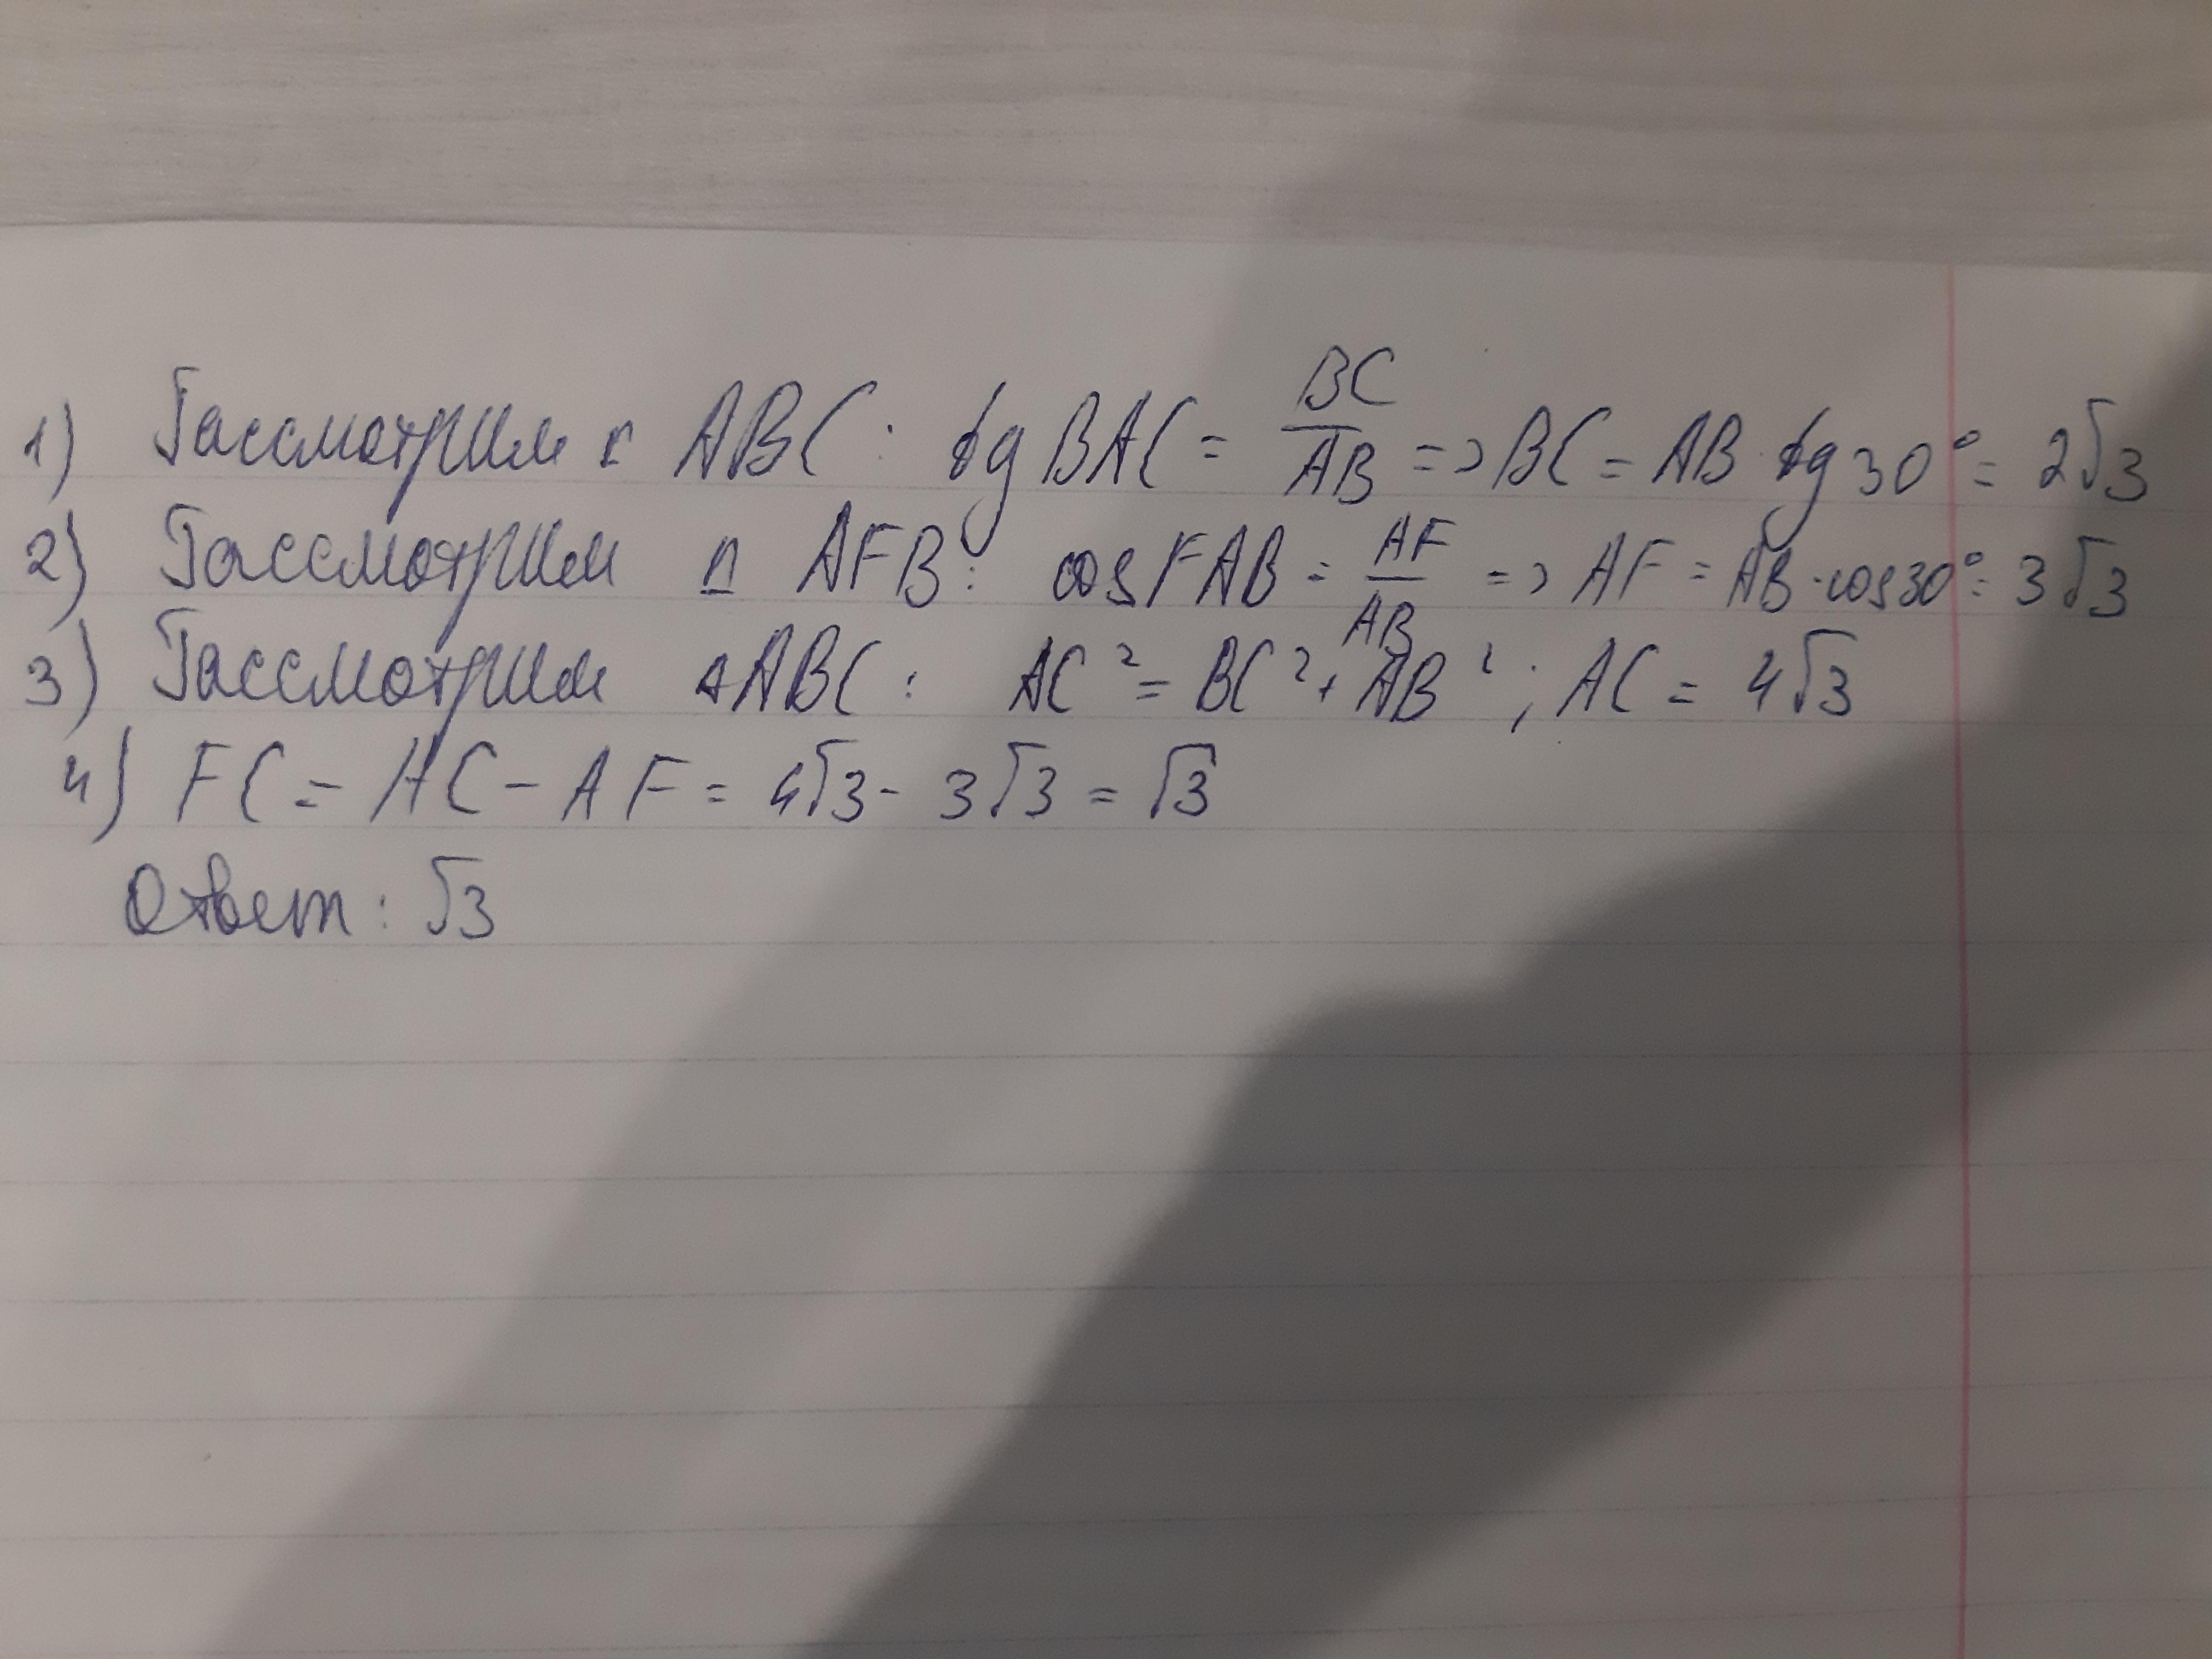 1) Рассмотрим △ ABC: tg BAC = BC/AB => BC = AB · tg 30° = 2√3
2) Рассмотрим △ AFB: cos FAB = AF/AB => AF = AB · cos 30° = 3√3
3) Рассмотрим △ABC: AC² = BC² + AB²; AC = 4√3
4) FC = AC - AF = 4√3 - 3√3 = √3
Ответ: √3